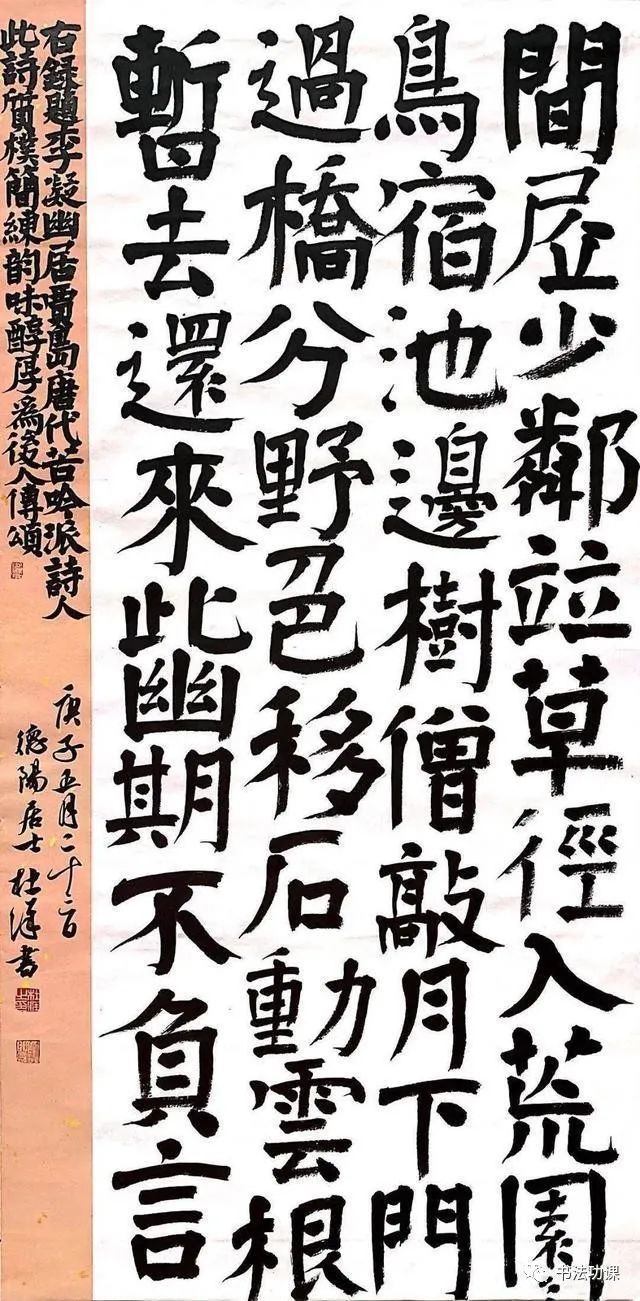 間居少鄰竝草徑入荒園
鳥宿池邊樹僧敲月下門
過橋分野色移石動雲根
暫去還來此幽期不負言
右錄題李凝幽居賈島唐代苦吟派詩人
此詩質樸簡練韵味醇厚爲後人傳頌
庚子五月二十日
德陽居士杜洋書
书法功课